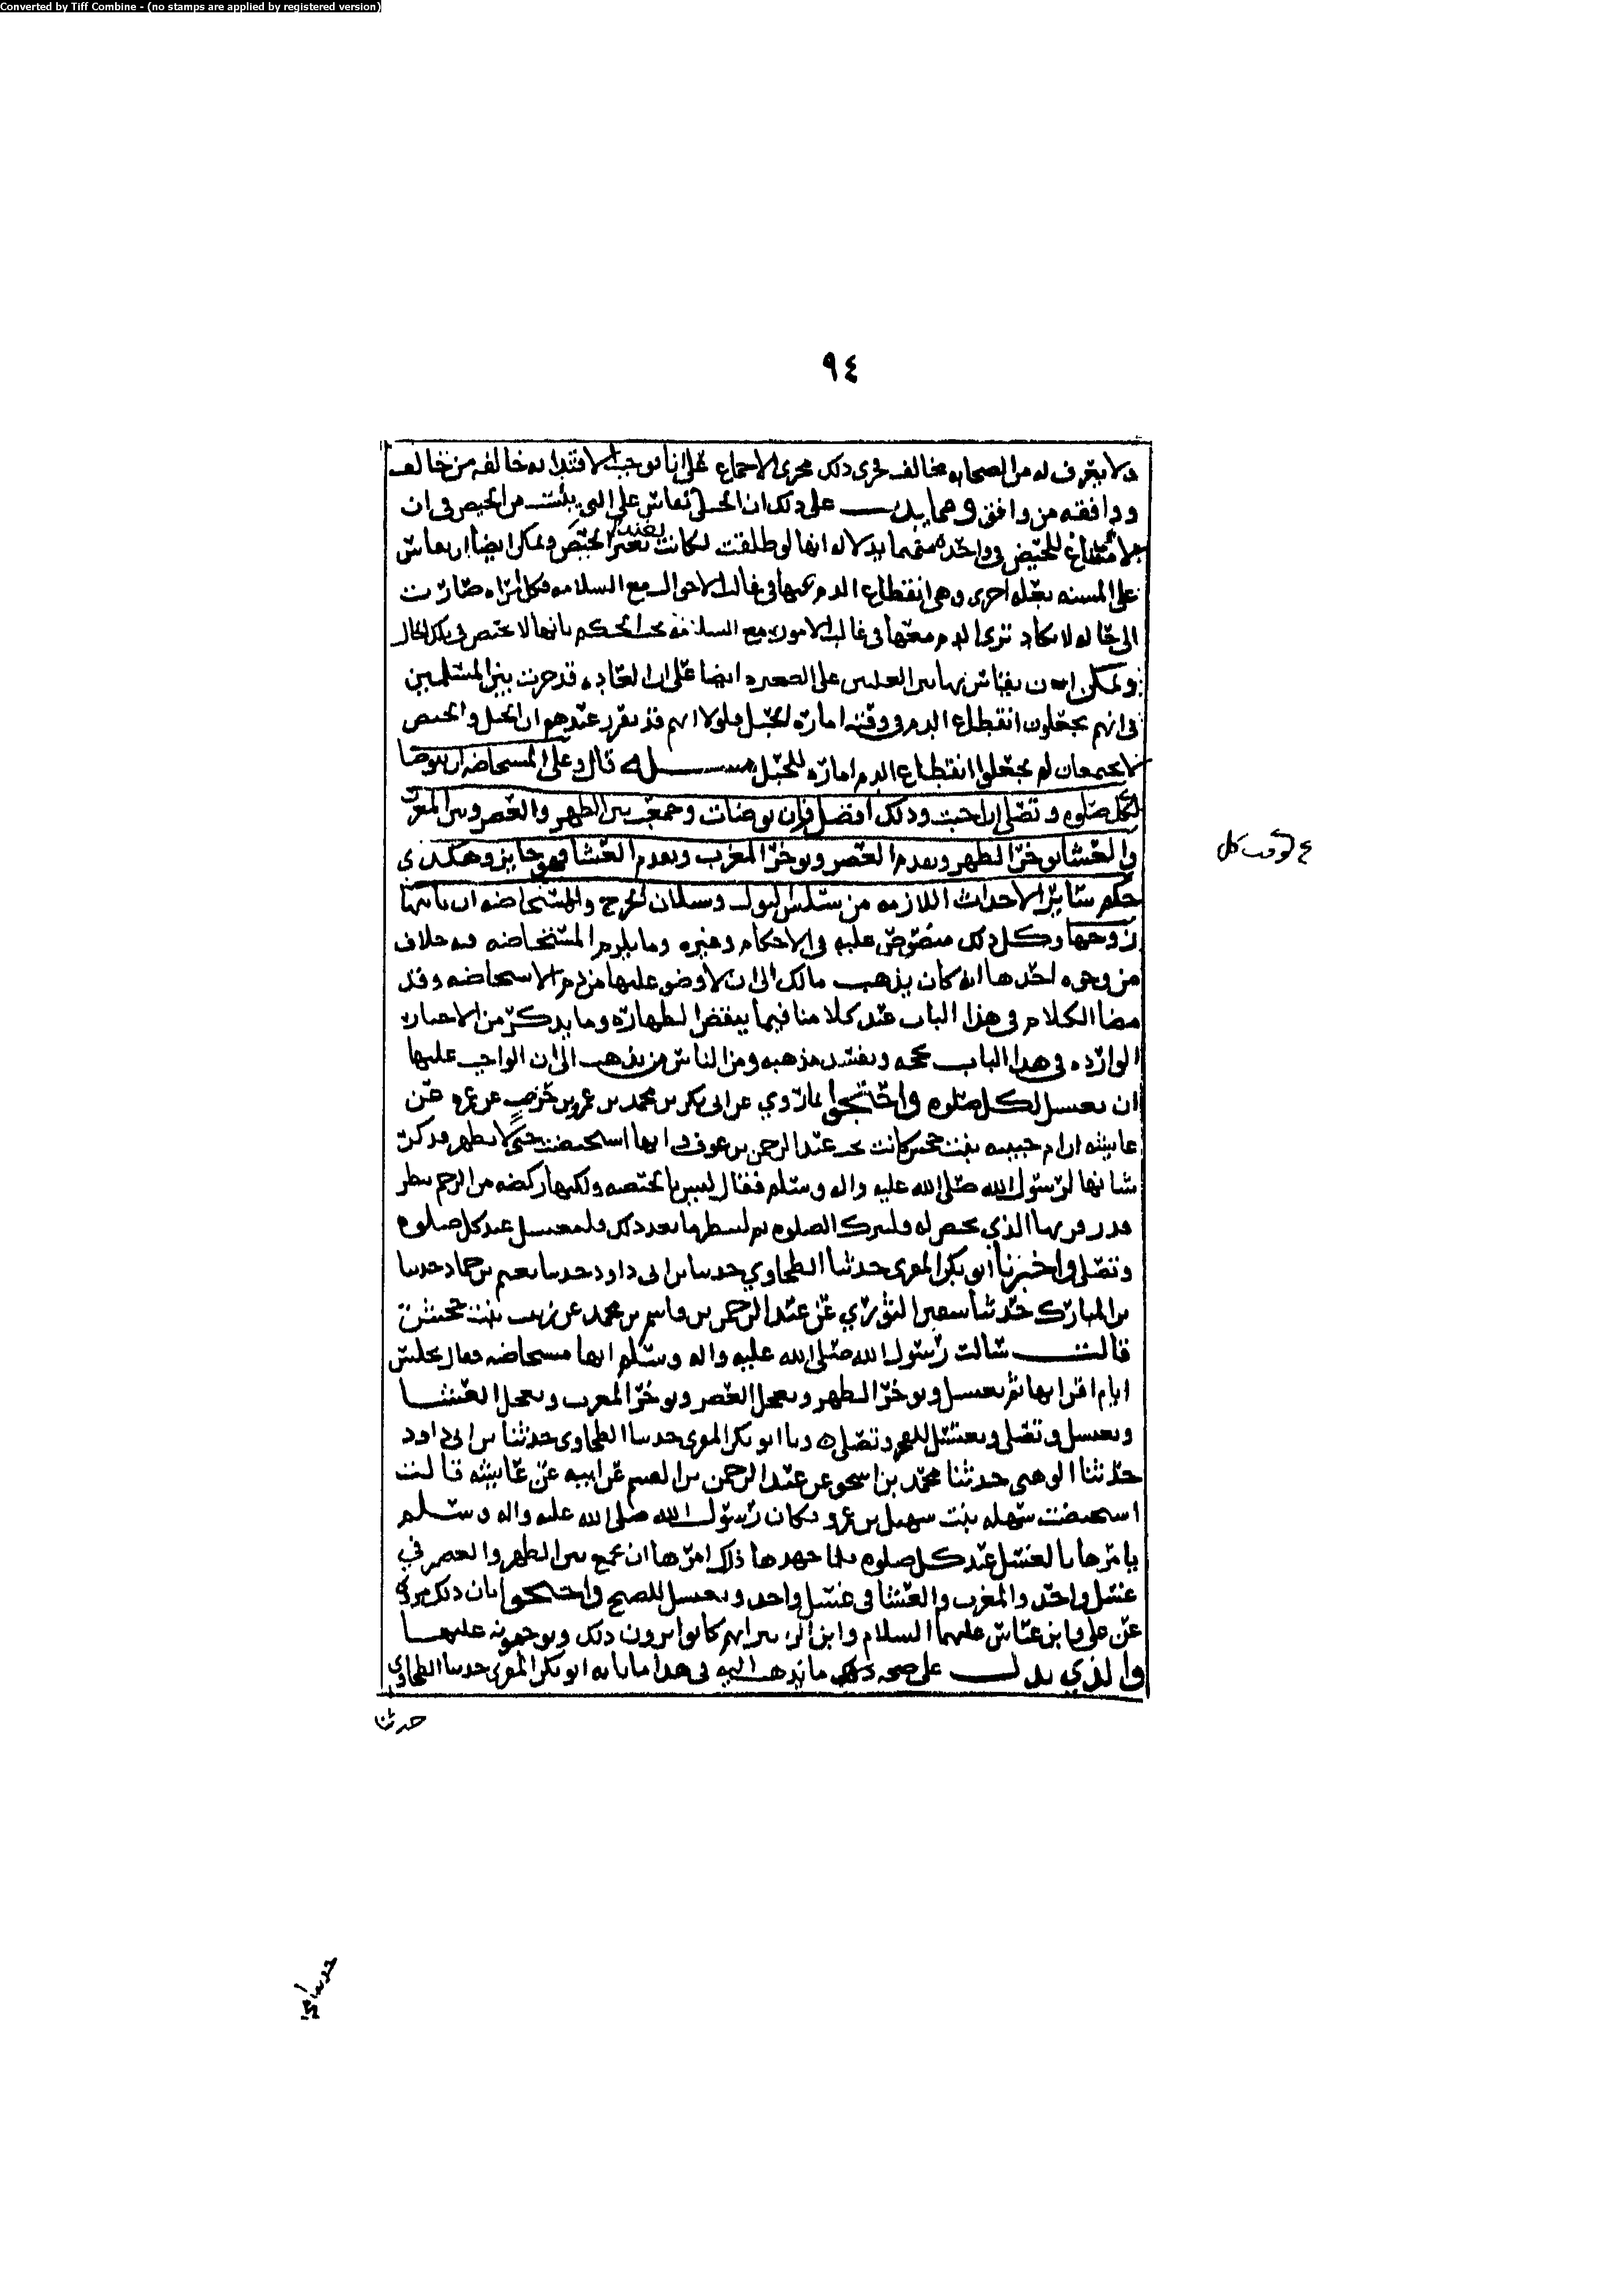 Converted by Tiff Combine - (no stamps are applied by registered version)
٩٤
ولا يعرف له من الصحابه مخالف فجرى ذلك مجرى الاجماع على انا نوجب الاقتدا به خالفه من خالف
ووافقه من وافق ومما يدل على ذلك ان الحبلى تقاس على التي يئست من الحيض في ان
للحيض في واحده منهما بدلاله انها لو طلقت لكانت الحيض ويمكن ايضا ان يقاس
على المسنه بعله اخرى وهي انقطاع الدم عنها في غالب الاحوال مع السلامه فكل امراه صارت
الى حاله لا تكاد ترى الدم معها في غالب الامور مع السلامه يجب الحكم بانها لا تحيض في تلك الحال
ويمكن ان يقاس بهاتين العلتين على الصغيره ايضا على ان العاده قد جرت بين المسلمين
في انهم يجعلون انقطاع الدم في وقته اماره للحبل فلولا انهم قد تقرر عندهم ان الحبل والحيض
لا يجتمعان لم يجعلوا انقطاع الدم اماره للحبل مسله قال وعلى المستحاضه ان تتوضا
لكل صلوه وتصلي ان احبت وذلك افضل فان توضات وجمعت بين الظهر والعصر وبين المغرب
والعشا توخر الظهر وتقدم العصر وتوخر المغرب وتقدم العشا فهو جايز وهكذى
ع لوقت كل
حكم ساير الاحداث اللازمه من سلس البول وسيلان الجرح والمستحاضه ان ياتيها
زوجها وكل ذلك منصوص عليه في الاحكام وغيره وما يلزم المستحاضه فيه خلاف
من وجوه احدها انه كان يذهب مالك الى ان لا وضو عليها من دم الاستحاضه وقد
مضا الكلام في هذا الباب عند كلامنا فيما ينقض الطهاره وما يذكر من الاخبار
الوارده في هذا الباب يحجه ويفسد مذهبه ومن الناس من يذهب الى ان الواجب عليها
ان تغتسل لكل صلوه واحتجوا بما روي عن ابي بكر بن محمد بن عمرو بن حزم عن عمره عن
عايشه ان ام حبيبه بنت جحش كانت تحت عبد الرحمن بن عوف وانها استحيضت حتى لا تطهر فذكرت
شانها لرسول الله صلى الله عليه واله وسلم فقال ليس بالحيضه ولكنها ركضه من الرحم لتنظر
قدر قروها الذي تحيض له فلتترك الصلوه ثم لتنظر ما بعد ذلك ولتغتسل عند كل صلوه
وتصلي واخبرنا ابو بكر المقرى حدثنا الطحاوي حدثنا بن ابي داود حدثنا نعيم بن حماد حدثنا
بن المبارك حدثنا سفين الثوري عن عبد الرحمن بن قاسم بن محمد عن زينب بنت جحش
قالت سالت رسول الله صلى الله عليه واله وسلم انها مستحاضه فقال تجلس
ايام اقرايها ثم تغتسل وتوخر الظهر وتعجل العصر وتوخر المغرب وتعجل العشا
وتغتسل وتصلي وتغتسل للفجر وتصلي ه وبا ابو بكر المقرى حدثنا الطحاوى حدثنا بن ابي داود
حدثنا الوهبي حدثنا محمد بن اسحق عن عبد الرحمن بن القسم عن ابيه عن عايشه قالت
استحيضت سهله بنت سهيل بن عمرو فكان رسول الله صلى الله عليه واله وسلم
يامرها بالغسل عند كل صلوه فلما جهدها ذلك امرها ان تجمع بين الظهر والعصر في
غسل واحد والمغرب والعشا في غسل واحد وتغتسل للصبح واحتجوا بان ذلك مروى
عن علي وابن عباس عليهما السلام وابن الزبير انهم كانوا يرون ذلك ويوجبونه عليها
والذي يدل على صحه ما نذهب اليه في هذا ما با به ابو بكر المقرى حدثنا الطحاوي
حدثنا